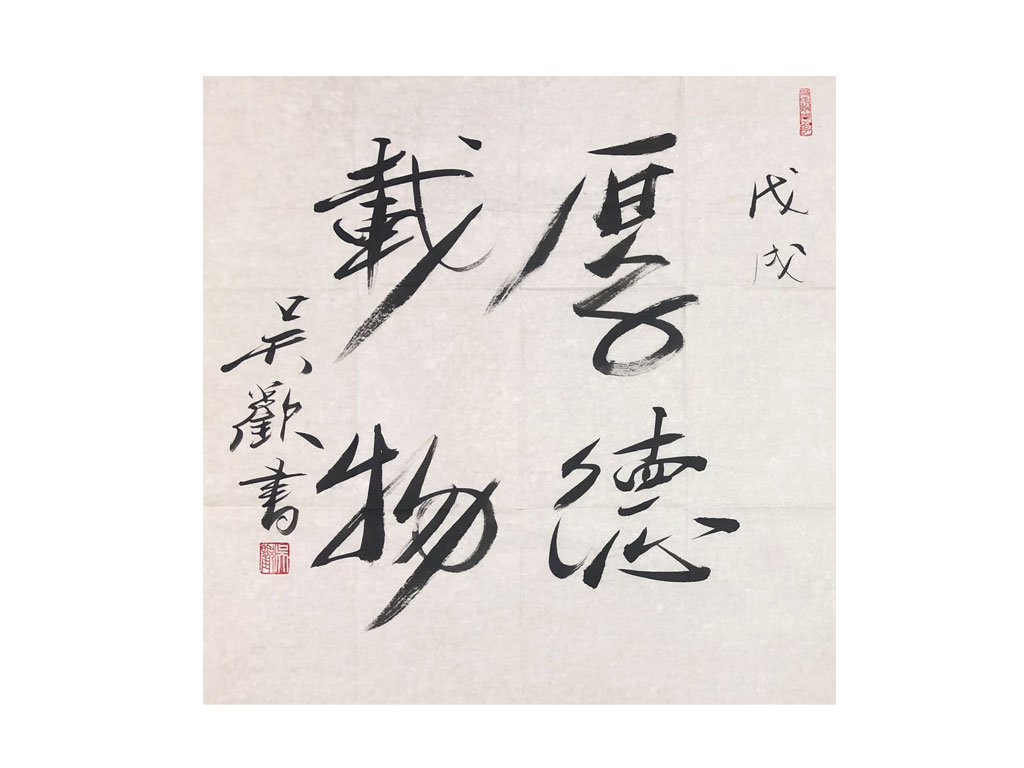 戊戌
厚德
載物
吳歡書